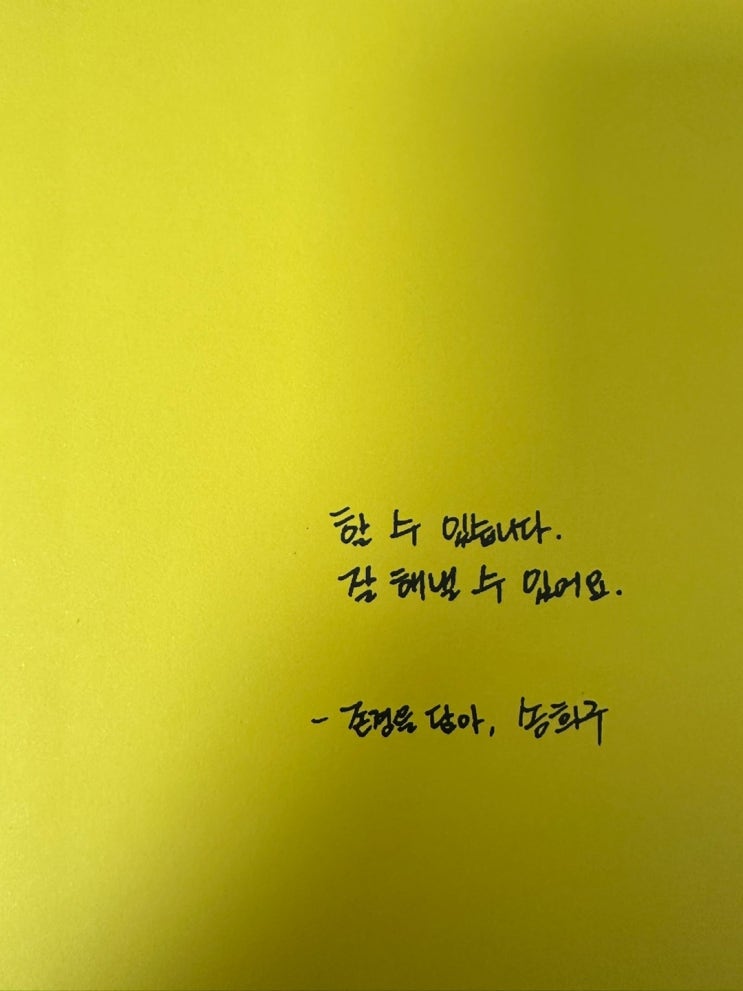 할 수 있습니다.
잘 해낼 수 있어요.
- 존경을 담아, 송희구